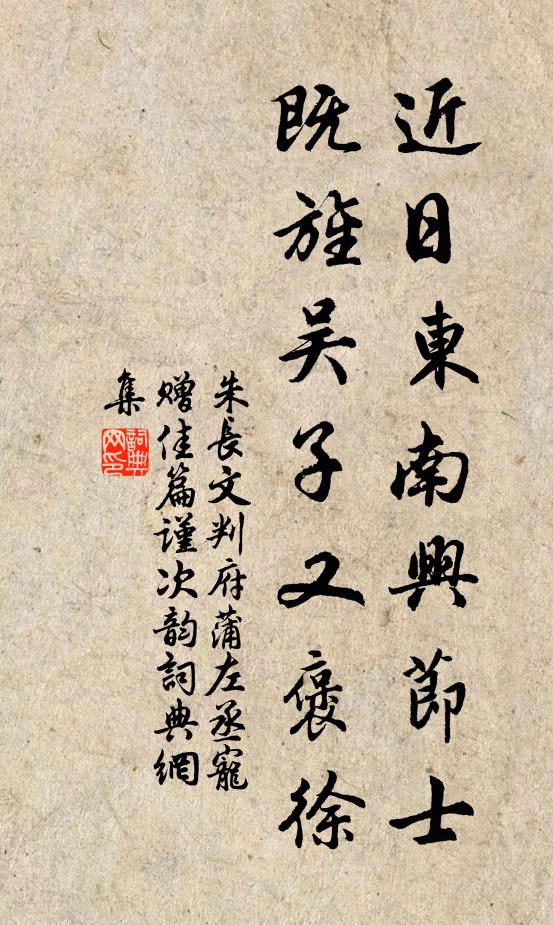 近日東南興節士
既旌吴子又褒徐
朱長文判府蒲左丞寵
贈佳篇謹次韵詞典網
集
詞典網印